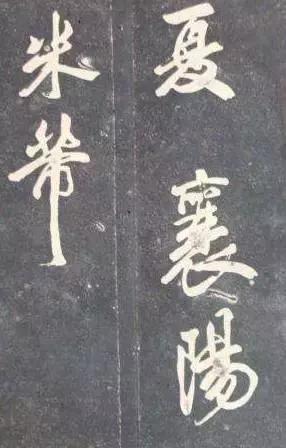 夏襄陽
米芾